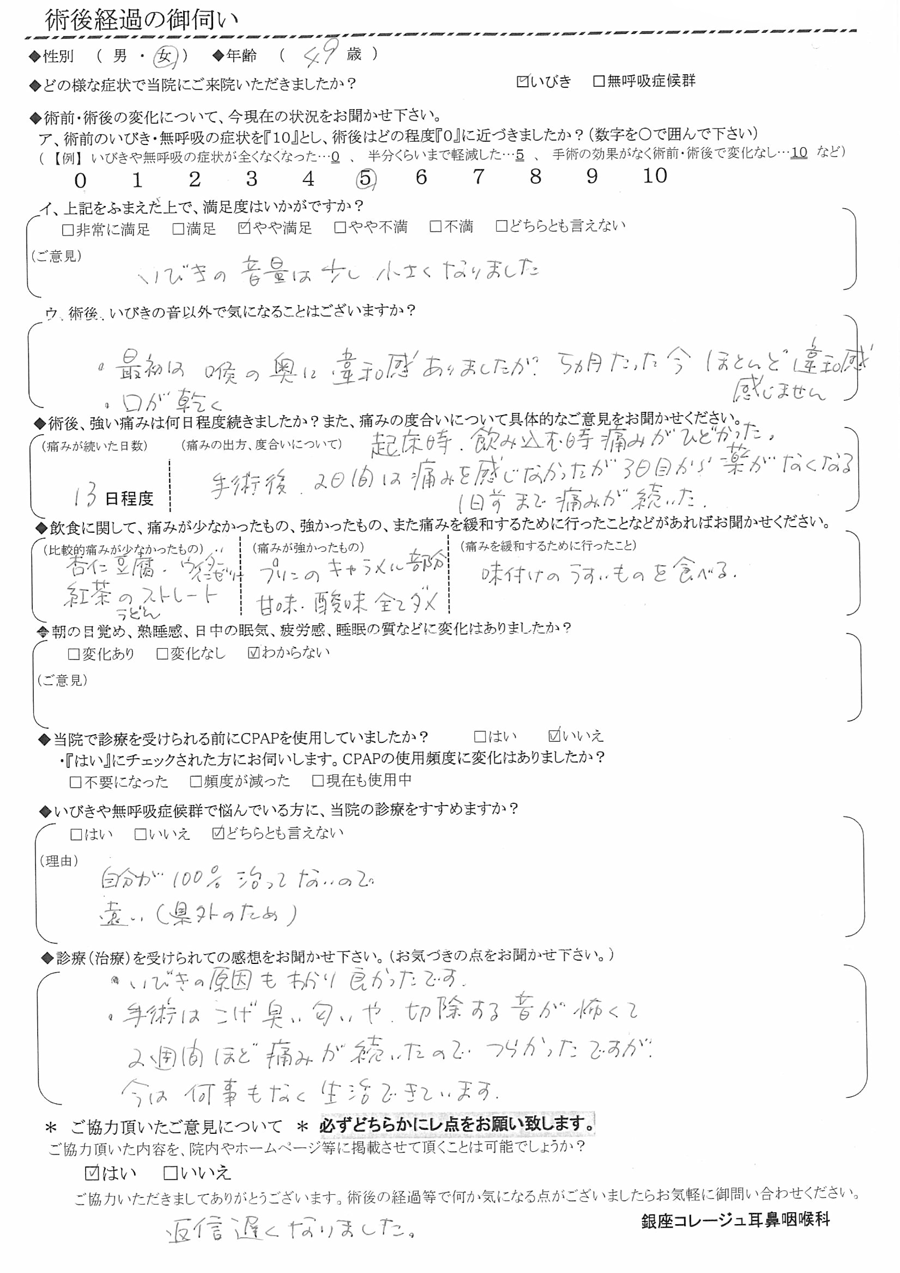 術後経過の御伺い
◆性別 ( 男 ・ 女 ) ◆年齢 ( 49 歳 )
◆どの様な症状で当院にご来院いただきましたか？ ☑いびき □無呼吸症候群
◆術前・術後の変化について、今現在の状況をお聞かせ下さい。
ア、術前のいびき・無呼吸の症状を『10』とし、術後はどの程度『0』に近づきましたか？（数字を〇で囲んで下さい）
（ 【例】 いびきや無呼吸の症状が全くなくなった…0 、 半分くらいまで軽減した…5 、 手術の効果がなく術前・術後で変化なし…10 など）
0 1 2 3 4 5 6 7 8 9 10
イ、上記をふまえた上で、満足度はいかがですか？
□非常に満足 □満足 ☑やや満足 □やや不満 □不満 □どちらとも言えない
(ご意見)
いびきの音量は少し小さくなりました
ウ、術後、いびきの音以外で気になることはございますか？
・最初は喉の奥に違和感ありましたが、5ヵ月たった今ほとんど違和感
感じません
・口が乾く
◆術後、強い痛みは何日程度続きましたか？また、痛みの度合いについて具体的なご意見をお聞かせください。
(痛みが続いた日数) (痛みの出方、度合いについて) 起床時、飲み込む時痛みがひどかった。
手術後、2日間は痛みを感じなかったが3日目から薬がなくなる
13 日程度 1日前まで痛みが続いた。
◆飲食に関して、痛みが少なかったもの、強かったもの、また痛みを緩和するために行ったことなどがあればお聞かせください。
(比較的痛みが少なかったもの) (痛みが強かったもの) (痛みを緩和するために行ったこと)
杏仁豆腐・ウイダーinゼリー プリンのキャラメル部分 味付けのうすいものを食べる。
紅茶のストレート 甘味・酸味全てダメ
うどん
◆朝の目覚め、熟睡感、日中の眠気、疲労感、睡眠の質などに変化はありましたか？
□変化あり □変化なし ☑わからない
(ご意見)
◆当院で診療を受けられる前にCPAPを使用していましたか？ □はい ☑いいえ
・『はい』にチェックされた方にお伺いします。CPAPの使用頻度に変化はありましたか？
□不要になった □頻度が減った □現在も使用中
◆いびきや無呼吸症候群で悩んでいる方に、当院の診療をすすめますか？
□はい □いいえ ☑どちらとも言えない
(理由)
自分が100%治ってないので
遠い（県外のため）
◆診療（治療）を受けられての感想をお聞かせ下さい。（お気づきの点をお聞かせ下さい。）
・いびきの原因もわかり良かったです。
・手術はこげ臭い匂いや、切除する音が怖くて
2週間ほど痛みが続いたのでつらかったですが、
今は何事もなく生活できています。
＊ ご協力頂いたご意見について ＊ 必ずどちらかにレ点をお願い致します。
ご協力頂いた内容を、院内やホームページ等に掲載させて頂くことは可能でしょうか？
☑はい □いいえ
ご協力いただきましてありがとうございます。術後の経過等で何か気になる点がございましたらお気軽に御問い合わせください。
銀座コレージュ耳鼻咽喉科
返信遅くなりました。